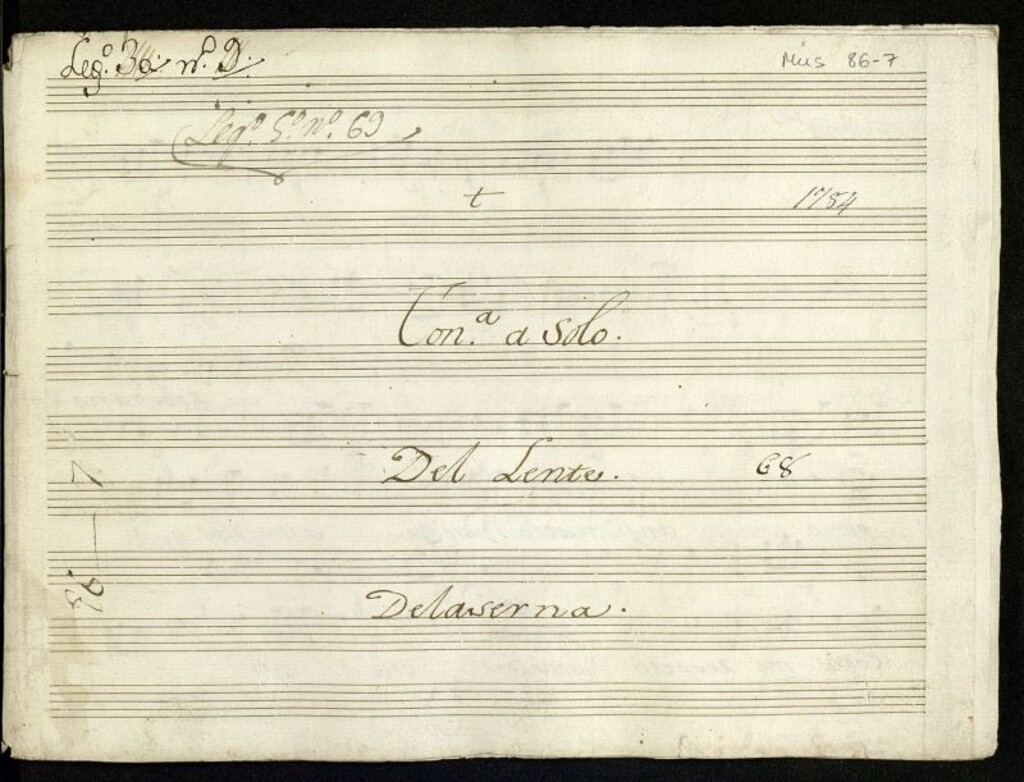 Leg.º 36. n.º D.
Mus 86-7
Leg.º 5.º n.º 69
t
1784
Ton.ª a solo.
Del Lente.
68
Delaserna.